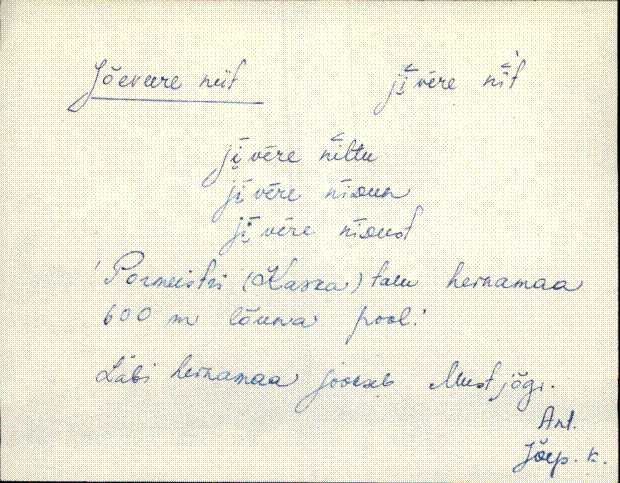 Jõeveere niit jị̄vēre nīt
jị̄vēre nīttu
jị̄vēre nīdun
jị̄vēre nīdust
'Pormeistri (Kaska) talu heinamaa
600 m lõuna pool.'
Läbi heinamaa jookseb Mustjõgi.
Ant.
Jõep. k.